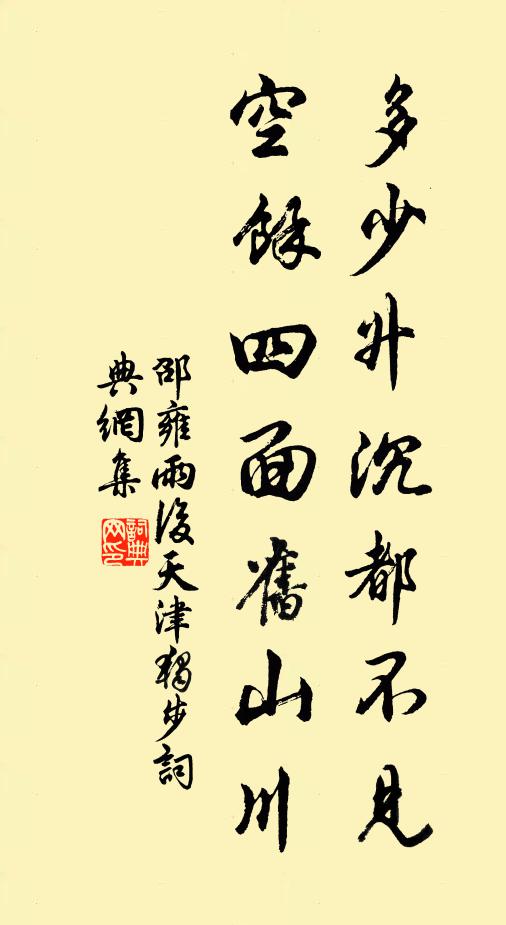 多少升沉都不見
空餘四面舊山川
邵雍雨後天津獨步詞
典網集
詞典
网印